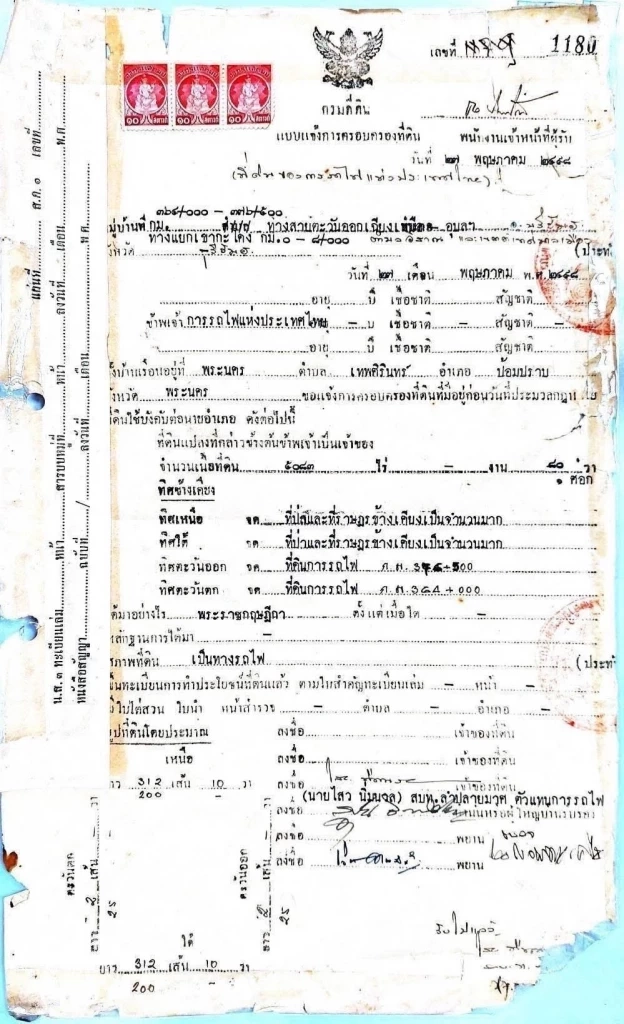 เลขที่ 1180
กรมที่ดิน
แบบแจ้งการครอบครองที่ดิน พนักงานเจ้าหน้าที่ผู้รับ
วันที่ ๒๗ พฤษภาคม ๒๔๙๘
(ที่ดินของการรถไฟแห่งประเทศไทย)
๓๖๔/๐๐๐ — ๓๗๖/๕๐๐
หมู่บ้านที่ กม. ทางสายตะวันออกเฉียงเหนือ อุบลฯ
ทางแยกเขากะโดง กม. ๐ - ๘/๐๐๐
จังหวัด บุรีรัมย์ (ประทับ
วันที่ ๒๗ เดือน พฤษภาคม พ.ศ. ๒๔๙๘
อายุ ปี เชื้อชาติ สัญชาติ
ข้าพเจ้า การรถไฟแห่งประเทศไทย - ปี เชื้อชาติ - สัญชาติ -
อายุ ปี เชื้อชาติ สัญชาติ
ตั้งบ้านเรือนอยู่ที่ พระนคร ตำบล เทพศิรินทร์ อำเภอ ป้อมปราบ
จังหวัด พระนคร ขอแจ้งการครอบครองที่ดินที่มีอยู่ก่อนวันที่ประมวลกฎหมาย
ที่ดินใช้บังคับต่อนายอำเภอ ดังต่อไปนี้
ที่ดินแปลงที่กล่าวข้างต้นข้าพเจ้าเป็นเจ้าของ
จำนวนเนื้อที่ดิน ๕๐๘๓ ไร่ - งาน ๘๐ วา
๑ ศอก
ทิศข้างเคียง
ทิศเหนือ จด ที่ป่าและที่ราษฎรข้างเคียงเป็นจำนวนมาก
ทิศใต้ จด ที่ป่าและที่ราษฎรข้างเคียงเป็นจำนวนมาก
ทิศตะวันออก จด ที่ดินการรถไฟ ก.ม.
ทิศตะวันตก จด ที่ดินการรถไฟ ก.ม. 364+000
ได้มาอย่างไร พระราชกฤษฎีกา ตั้งแต่เมื่อใด -
หลักฐานการได้มา -
สภาพที่ดิน เป็นทางรถไฟ (ประทับ
ขึ้นทะเบียนการทำประโยชน์ที่ดินแล้ว ตามใบสำคัญทะเบียนเล่ม - หน้า -
มีใบไต่สวน ใบนำ หน้าสำรวจ - ตำบล - อำเภอ -
รูปที่ดินโดยประมาณ ลงชื่อ เจ้าของที่ดิน
เหนือ ลงชื่อ เจ้าของที่ดิน
ยาว 312 เส้น 10 วา ลงชื่อ เจ้าของที่ดิน
200 -
(นายไสว นิ่มนวล) สบท.ลำปลายมาศ ตัวแทนการรถไฟ
ลงชื่อ
ลงชื่อ พยาน
ลงชื่อ พยาน
ตะวันตก
ยาว 2 เส้น - วา
25
ตะวันออก
ยาว 2 เส้น - วา
25
ใต้
ยาว 312 เส้น 10 วา
200 -
แผ่นที่ ส.ค. ๑ เลขที่
น.ส. ๓ ทะเบียนเล่ม หน้า สารบบหมู่ที่ หน้า ลงวันที่ เดือน พ.ศ.
หนังสือสัญญา ฉบับที่ / ลงวันที่ เดือน พ.ศ.